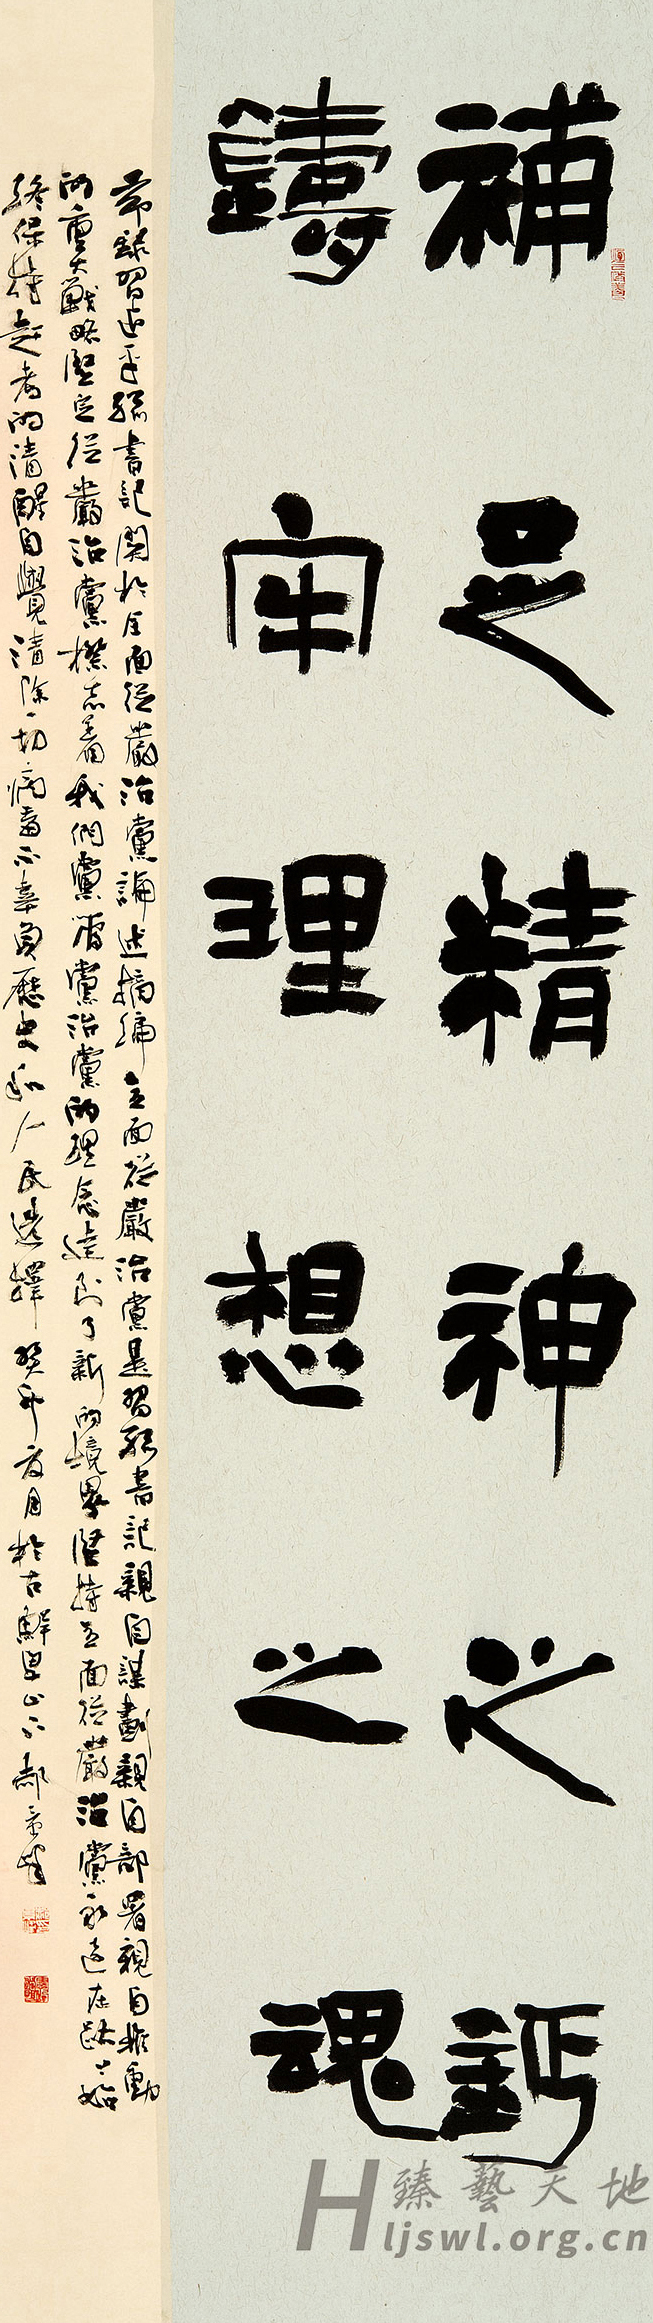 補足精神之鈣
鑄牢理想之魂
節錄習近平總書記關於全面從嚴治黨論述摘編 全面從嚴治黨是習總書記親自謀劃親自部署親自推動
的重大戰略堅定從嚴治黨標志着我們黨管黨治黨的理念達到了新的境界堅持全面從嚴治黨永遠在路上始
終保持趕考的清醒自覺清除一切病毒不辜負歷史和人民選擇 癸卯 月於古 山下郝
臻藝天地
Hljswl.org.cn